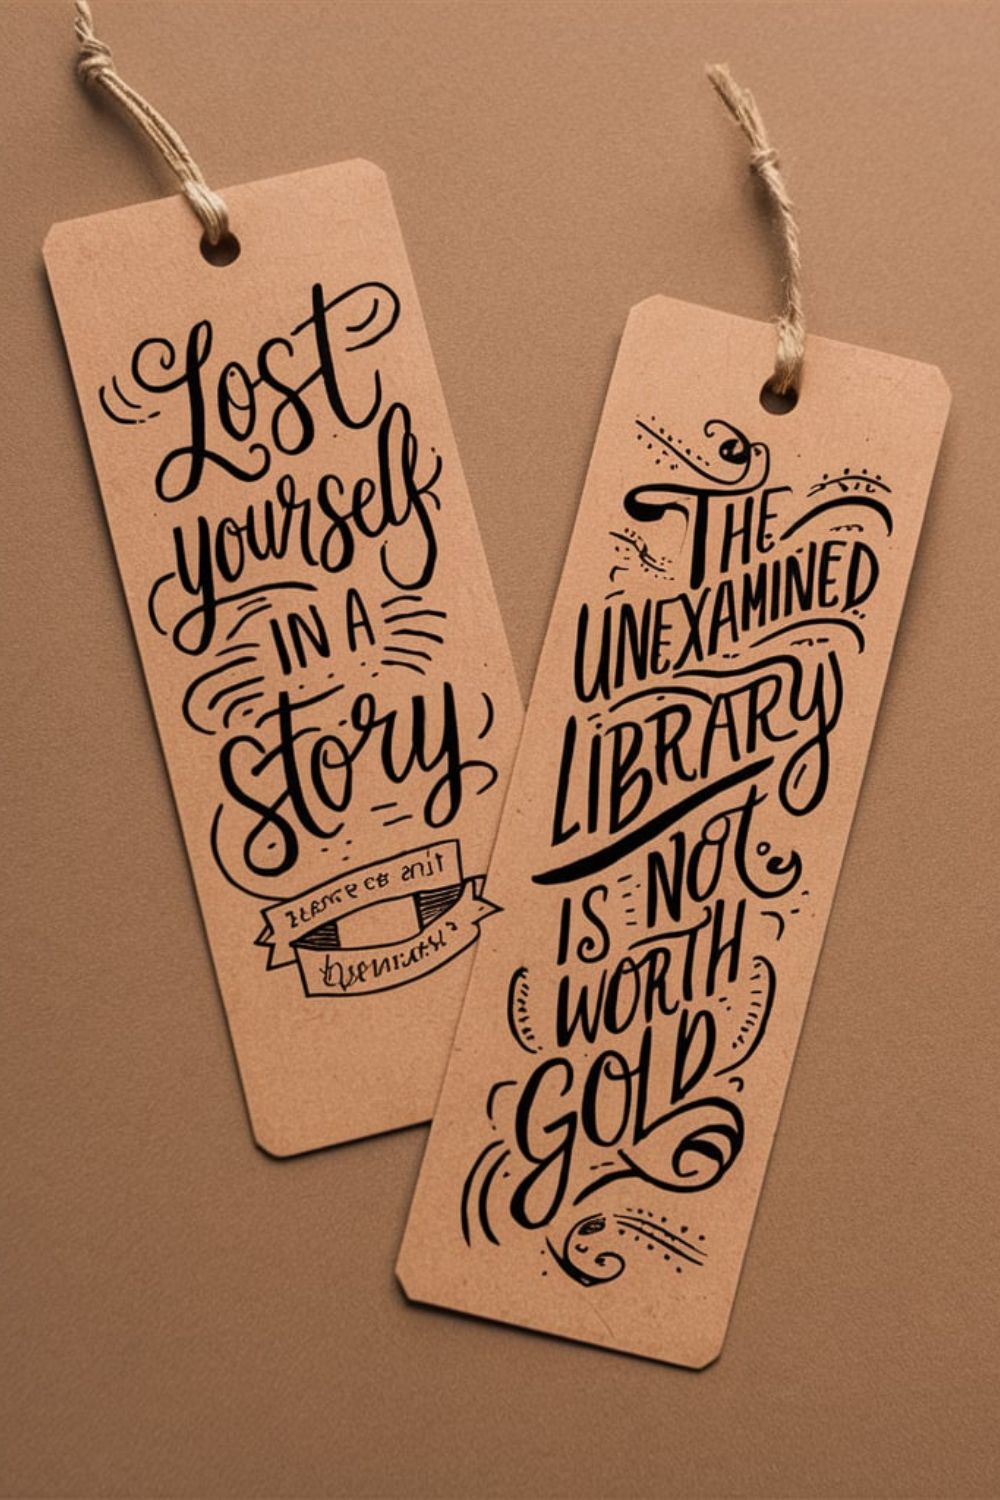 Lost
yourself
IN A
story
THE
UNEXAMINED
LIBRARY
IS NOT
WORTH
GOLD